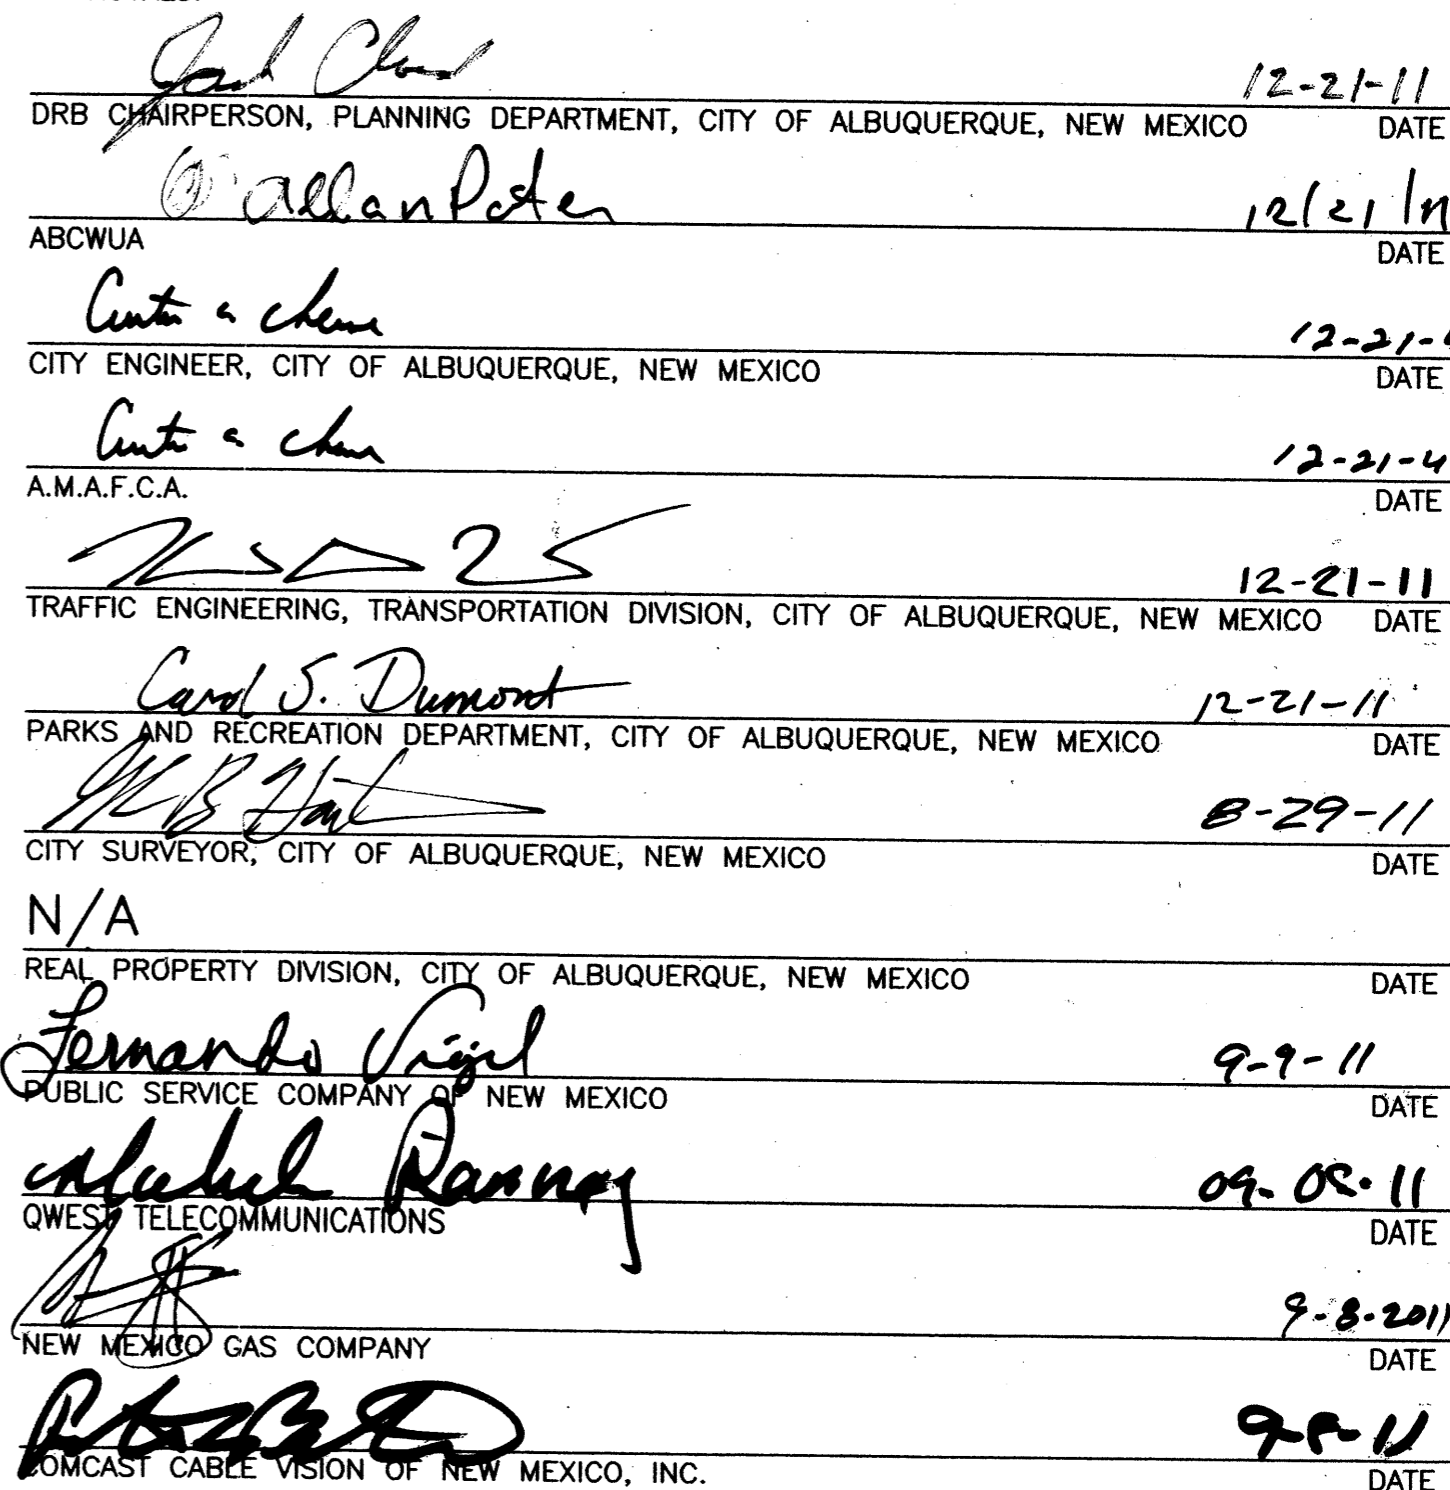 Jack Cloud 12-21-11
DRB CHAIRPERSON, PLANNING DEPARTMENT, CITY OF ALBUQUERQUE, NEW MEXICO DATE
Allan Porter 12/21/11
ABCWUA DATE
12-21-11
CITY ENGINEER, CITY OF ALBUQUERQUE, NEW MEXICO DATE
12-21-11
A.M.A.F.C.A. DATE
12-21-11
TRAFFIC ENGINEERING, TRANSPORTATION DIVISION, CITY OF ALBUQUERQUE, NEW MEXICO DATE
Carol S. Dumont 12-21-11
PARKS AND RECREATION DEPARTMENT, CITY OF ALBUQUERQUE, NEW MEXICO DATE
8-29-11
CITY SURVEYOR, CITY OF ALBUQUERQUE, NEW MEXICO DATE
N/A
REAL PROPERTY DIVISION, CITY OF ALBUQUERQUE, NEW MEXICO DATE
Fernando Vigil 9-9-11
PUBLIC SERVICE COMPANY OF NEW MEXICO DATE
09.08.11
QWEST TELECOMMUNICATIONS DATE
9-8-2011
NEW MEXICO GAS COMPANY DATE
9-8-11
COMCAST CABLE VISION OF NEW MEXICO, INC. DATE